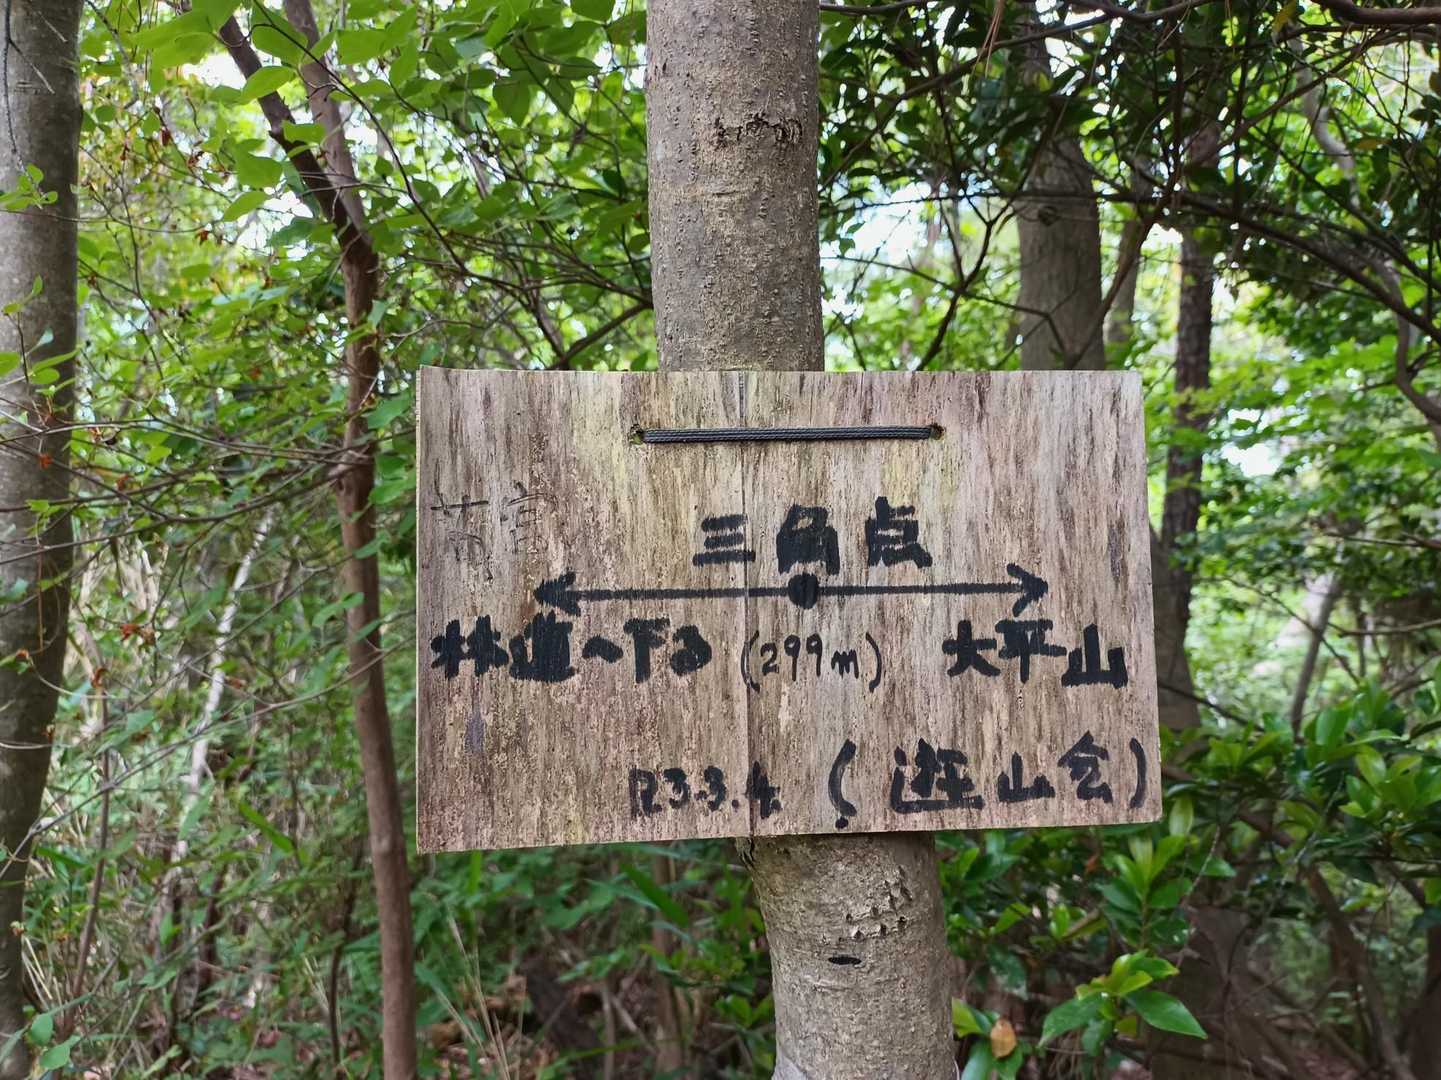 三角点
林道へ下る (299m) 大平山
R3.3.4 (遊山会)